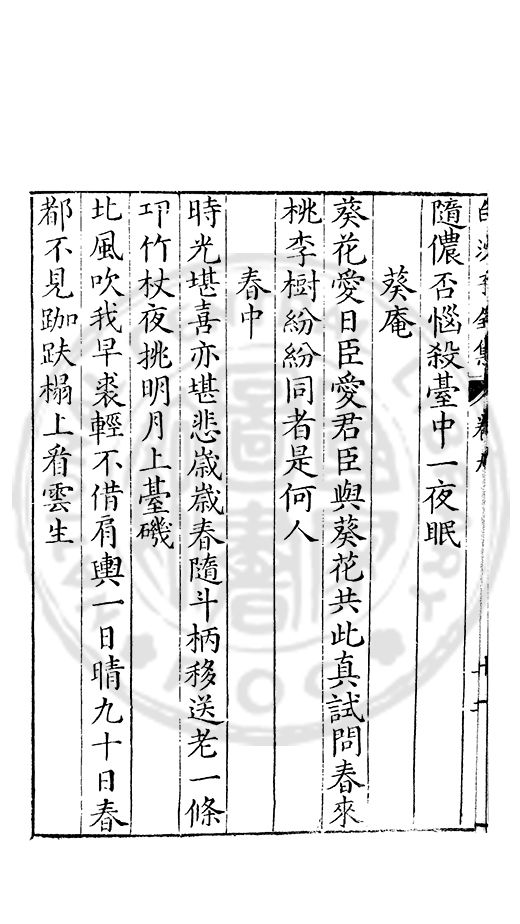 隨儂否惱殺臺中一夜眠
葵庵
葵花愛日臣愛君臣與葵花共此真試問春來
桃李樹紛紛同者是何人
春中
時光堪喜亦堪悲歲歲春隨斗柄移送老一條
卭竹杖夜挑明月上臺磯
北風吹我早裘輕不借肩輿一日晴九十日春
都不見跏趺榻上看雲生